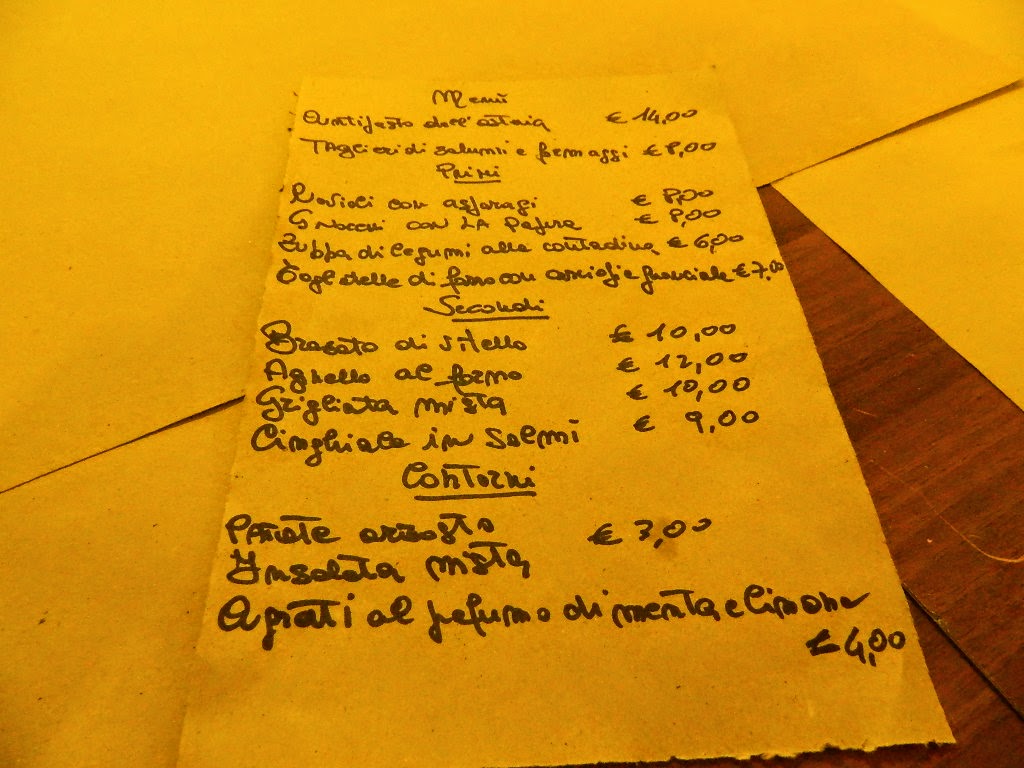 Menù
Antipasto dell'osteria € 14,00
Taglieri di salumi e formaggi € 8,00
Primi
Ravioli con asparagi € 8,00
Gnocchi con LA € 8,00
Zuppa di legumi alla contadina € 6,00
Tagliatelle di farro con carciofi e guanciale € 7,00
Secondi
Brasato di vitello € 10,00
Agnello al forno € 12,00
Grigliata mista € 10,00
Cinghiale in salmì € 9,00
Contorni
Patate arrosto € 3,00
Insalata mista
al profumo di menta e limone
€ 4,00